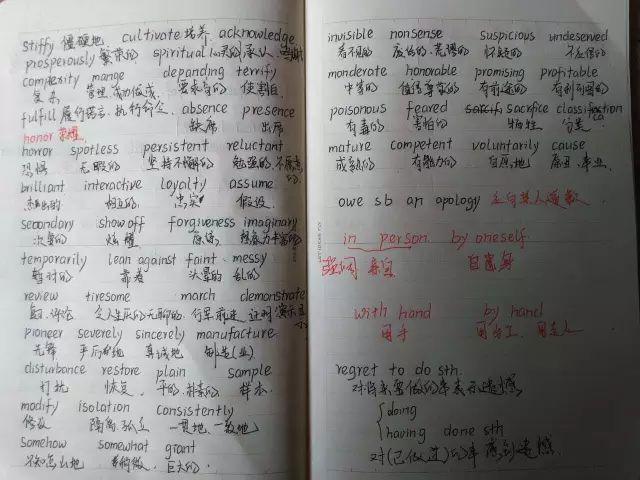 stiffy 僵硬地 cultivate 培养 acknowledge
prosperously 繁荣的 spiritual 心灵的 承认
complexity mange depanding terrify
复杂 管理 成功做成 要求高的 使害怕
fulfill 履行诺言、执行命令 absence presence
缺席 出席
honor 荣耀
horror spotless persistent reluctant
恐惧 无暇的 坚持不懈的 勉强的 不愿意
brilliant interactive loyalty assume
杰出的 相互的 忠实 假设
secondary show off forgiveness imaginary
次要的 炫耀 原谅
temporarily lean against faint messy
暂时的 靠着 头晕的 乱的
review tiresome march demonstrate
评论 令人生厌的 无聊的 行军 前进 证明 演示
pioneer severely sincerely manufacture
先锋 严厉地 真诚地 制造(业)
disturbance restore plain sample
打扰 恢复 平的 朴素的 样本
modify isolation consistently
修改 隔离 孤立 一贯地、一致地
somehow somewhat grant
不知怎么地 有稍微 巨大的
invisible nonsense suspicious undeserved
看不见的 荒谬的 怀疑的 不应得的
monderate honorable promising profitable
中等的 值得尊敬的 有前途的 有利可图的
poisonous feared sacrfice classification
有毒的 害怕的 牺牲 分类
mature competent voluntarily cause
成熟的 有能力的 自愿地 原因 事业
owe sb an apology 应向某人道歉
in person by oneself
强调 亲自 自
with hand by hand
用手 用手工
regret to do sth.
对将来要做的事表示遗憾
doing
having done sth
对(已做过)的事感到遗憾